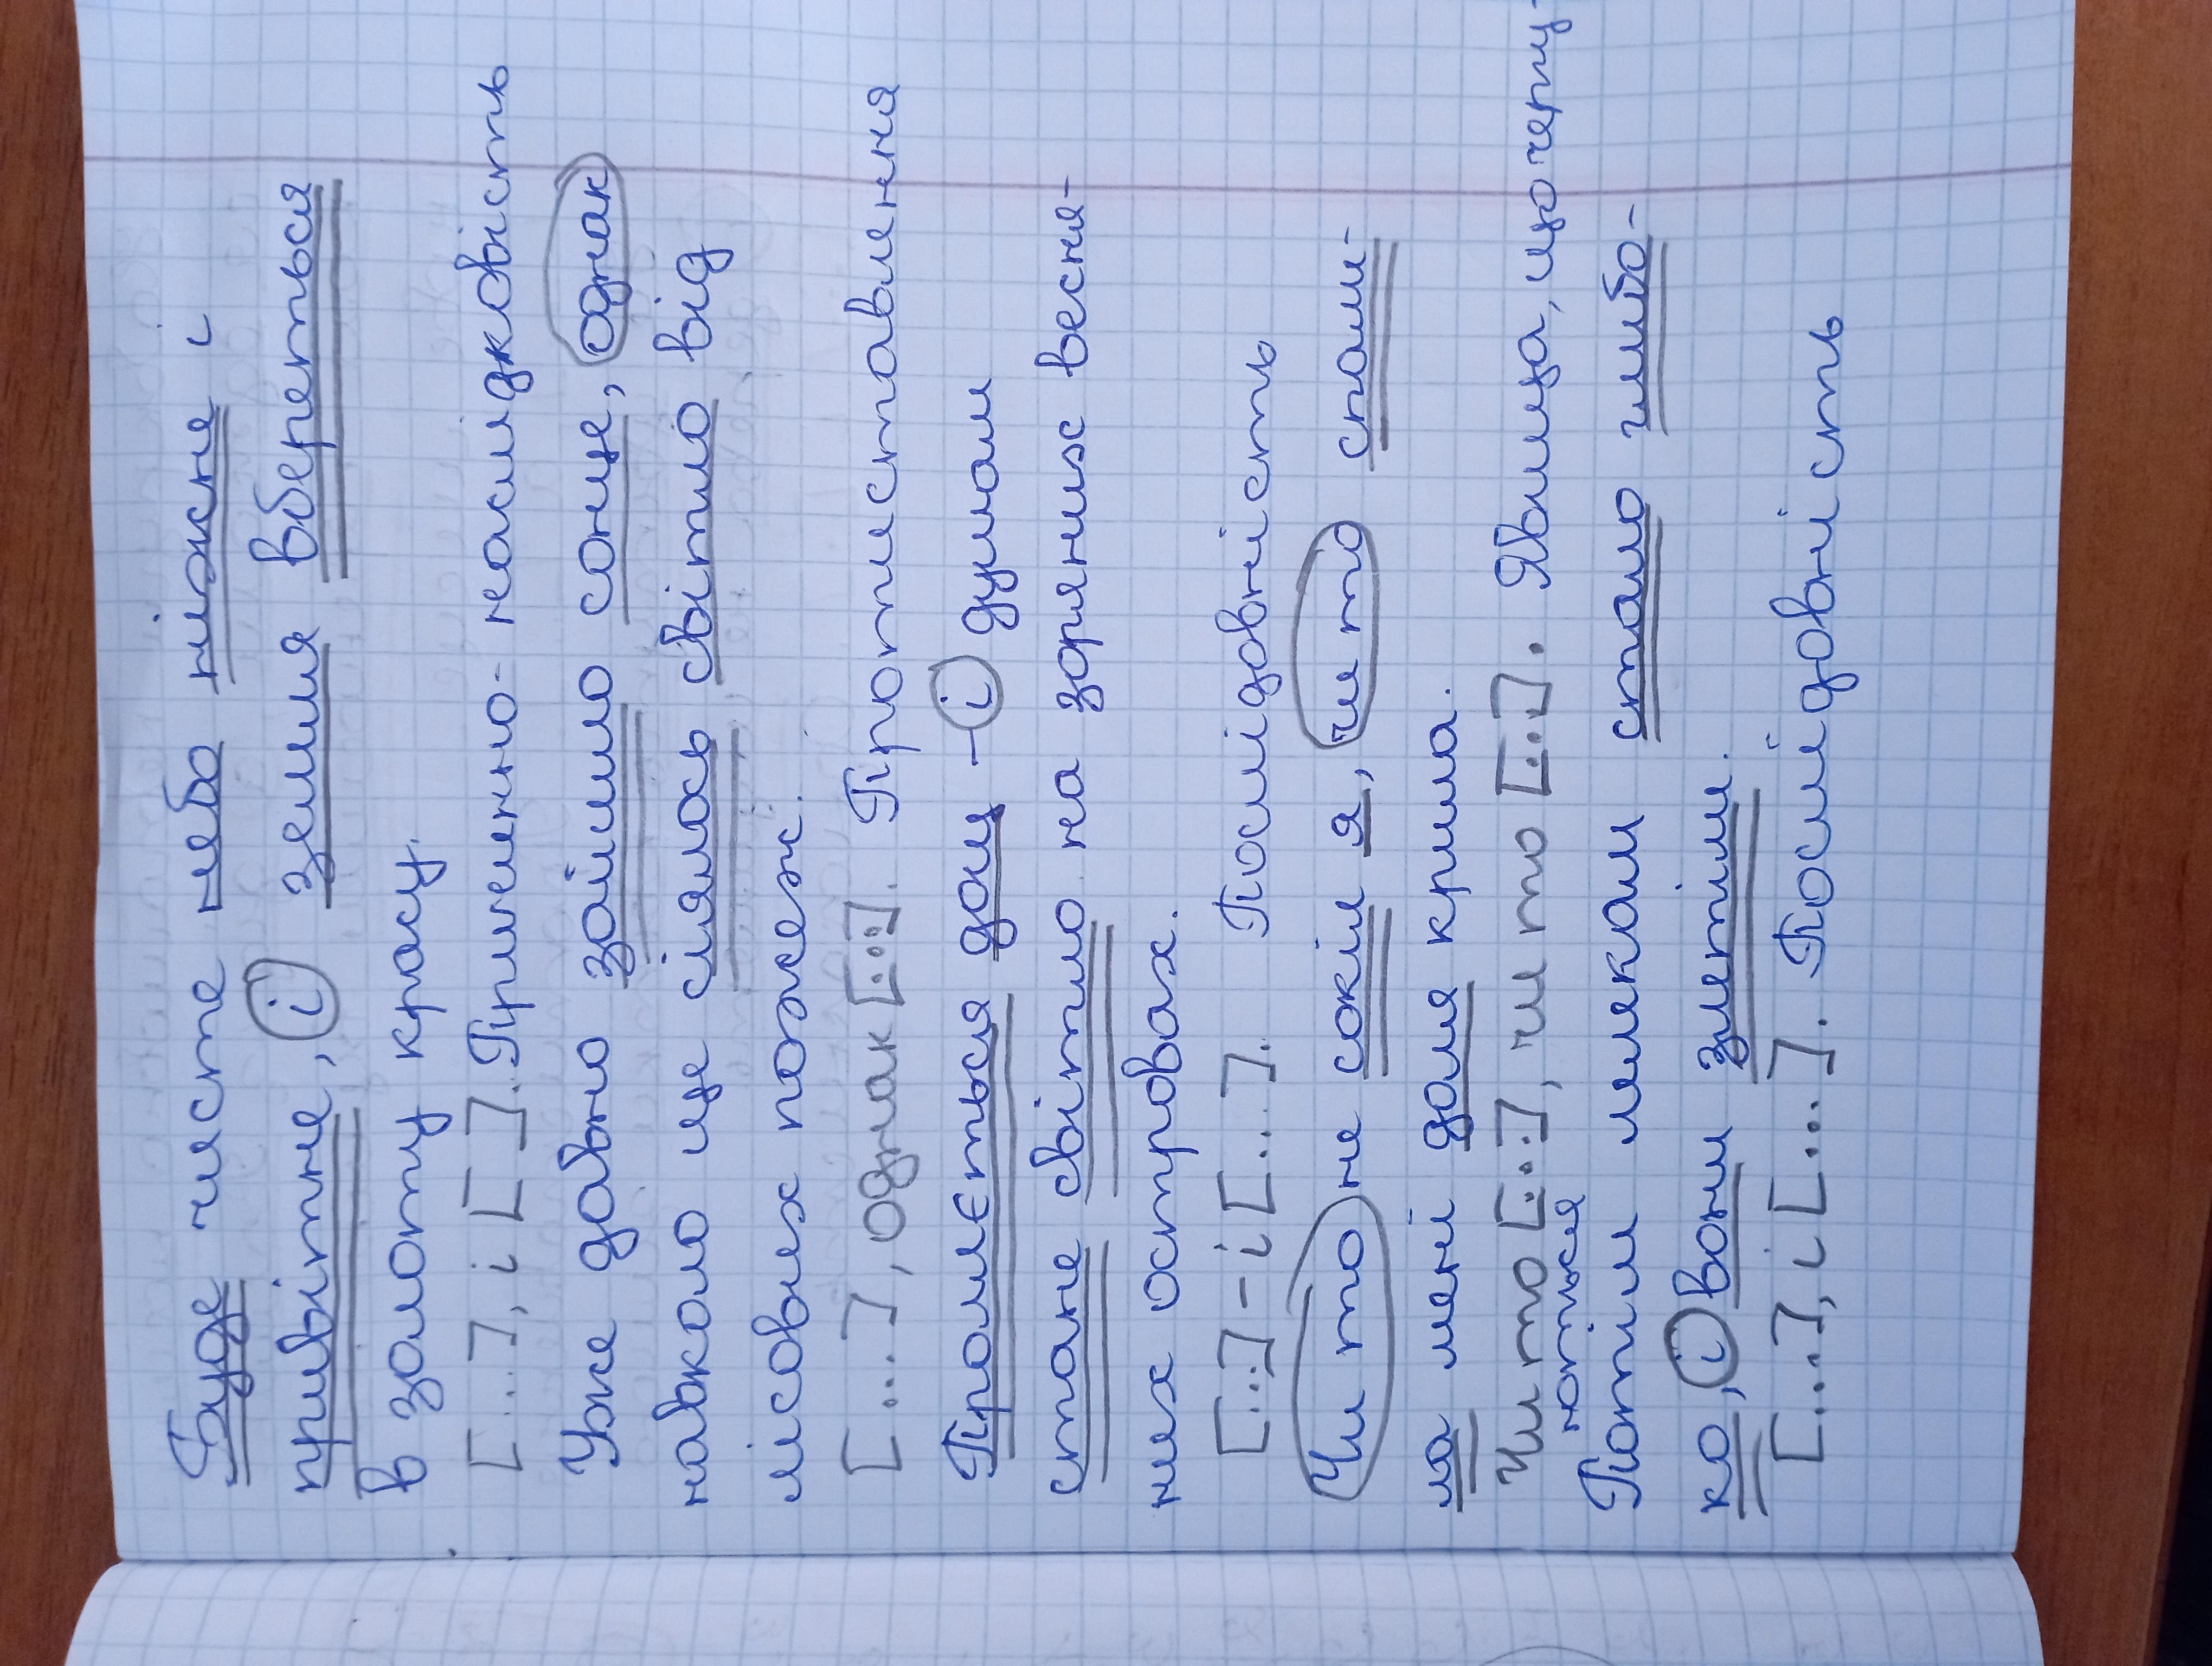 Буде чисте небо ніжне і
привітне, і земля вбереться
в золоту красу.
[...], і [ ]. Причинно-наслідковість
Уже давно зайшло сонце, однак
навколо ще сіялось світло від
лісових пожеж.
[...], однак [...]. Протиставлення
Промиється дощ - і думали
стане світло на зоряних весня-
них островах.
[...] - і [...]. Послідовність
Чи то не сокіл я, чи то спали-
ла мені доля крила.
Чи то [...], чи то [...]. Явища, що чергу-
ються
Потім лелекам стало глибо-
ко, і вони злетіли.
[...], і [...]. Послідовність